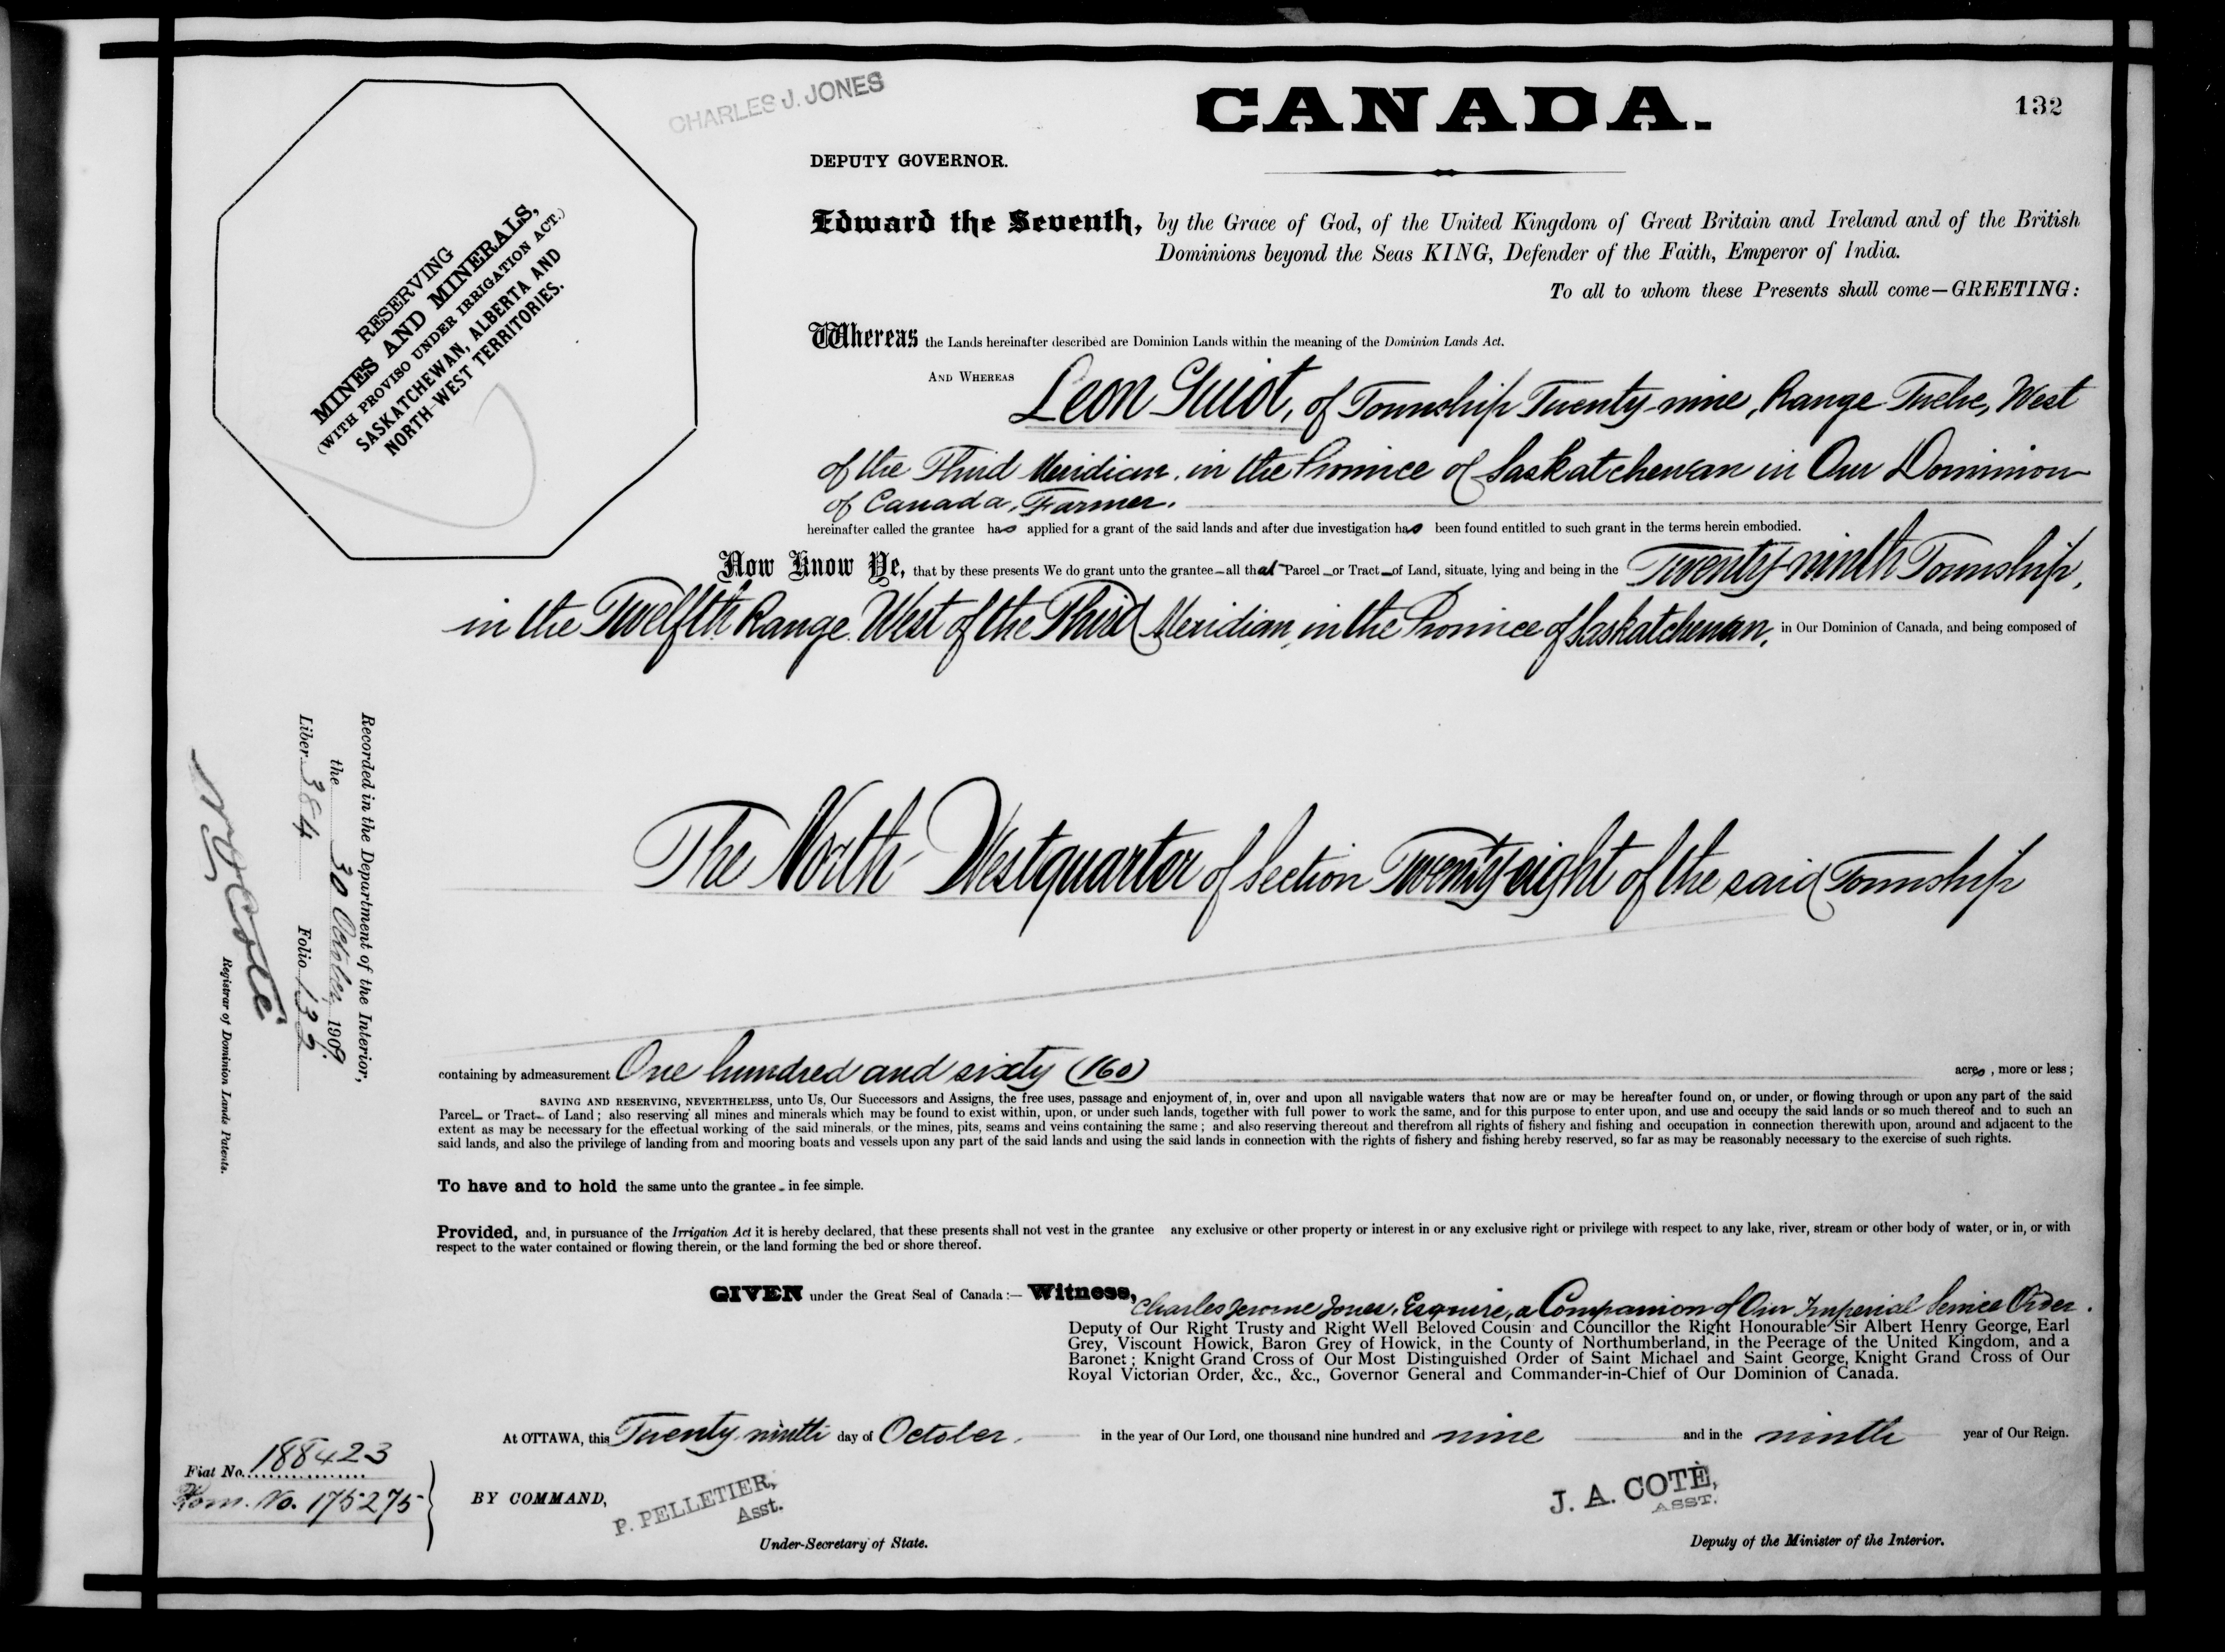 CHARLES J. JONES
CANADA.
132
DEPUTY GOVERNOR.
RESERVING
MINES AND MINERALS,
(WITH PROVISO UNDER IRRIGATION ACT.)
SASKATCHEWAN, ALBERTA AND
NORTH-WEST TERRITORIES.
Edward the Seventh, by the Grace of God, of the United Kingdom of Great Britain and Ireland and of the British
Dominions beyond the Seas KING, Defender of the Faith, Emperor of India.
To all to whom these Presents shall come—GREETING:
Whereas the Lands hereinafter described are Dominion Lands within the meaning of the Dominion Lands Act.
AND WHEREAS Leon Guiot, of Township Twenty-nine, Range Twelve, West
of the Third Meridian, in the Province of Saskatchewan in Our Dominion
of Canada, Farmer.
hereinafter called the grantee has applied for a grant of the said lands and after due investigation has been found entitled to such grant in the terms herein embodied.
Now Know Ye, that by these presents We do grant unto the grantee—all that Parcel or Tract of Land, situate, lying and being in the Twenty-ninth Township,
in the Twelfth Range West of the Third Meridian, in the Province of Saskatchewan, in Our Dominion of Canada, and being composed of
The North-West quarter of Section Twenty eight of the said Township
containing by admeasurement One hundred and sixty (160) acres, more or less;
SAVING AND RESERVING, NEVERTHELESS, unto Us, Our Successors and Assigns, the free uses, passage and enjoyment of, in, over and upon all navigable waters that now are or may be hereafter found on, or under, or flowing through or upon any part of the said
Parcel or Tract of Land; also reserving all mines and minerals which may be found to exist within, upon, or under such lands, together with full power to work the same, and for this purpose to enter upon, and use and occupy the said lands or so much thereof and to such an
extent as may be necessary for the effectual working of the said minerals, or the mines, pits, seams and veins containing the same; and also reserving thereout and therefrom all rights of fishery and fishing and occupation in connection therewith upon, around and adjacent to the
said lands, and also the privilege of landing from and mooring boats and vessels upon any part of the said lands and using the said lands in connection with the rights of fishery and fishing hereby reserved, so far as may be reasonably necessary to the exercise of such rights.
To have and to hold the same unto the grantee in fee simple.
Provided, and, in pursuance of the Irrigation Act it is hereby declared, that these presents shall not vest in the grantee any exclusive or other property or interest in or any exclusive right or privilege with respect to any lake, river, stream or other body of water, or in, or with
respect to the water contained or flowing therein, or the land forming the bed or shore thereof.
GIVEN under the Great Seal of Canada:— Witness, Charles Jerome Jones, Esquire, a Companion of Our Imperial Service Order.
Deputy of Our Right Trusty and Right Well Beloved Cousin and Councillor the Right Honourable Sir Albert Henry George, Earl
Grey, Viscount Howick, Baron Grey of Howick, in the County of Northumberland, in the Peerage of the United Kingdom, and a
Baronet; Knight Grand Cross of Our Most Distinguished Order of Saint Michael and Saint George, Knight Grand Cross of Our
Royal Victorian Order, &c., &c., Governor General and Commander-in-Chief of Our Dominion of Canada.
At OTTAWA, this Twenty ninth day of October, in the year of Our Lord, one thousand nine hundred and nine and in the ninth year of Our Reign.
BY COMMAND,
P. PELLETIER,
Asst.
Under-Secretary of State.
J. A. COTÉ,
ASST.
Deputy of the Minister of the Interior.
Fiat No. 188423
Hom. No. 175275
Recorded in the Department of the Interior,
the 30 October 1909
Liber 384 Folio 132
N O Coté
Registrar of Dominion Lands Patents.